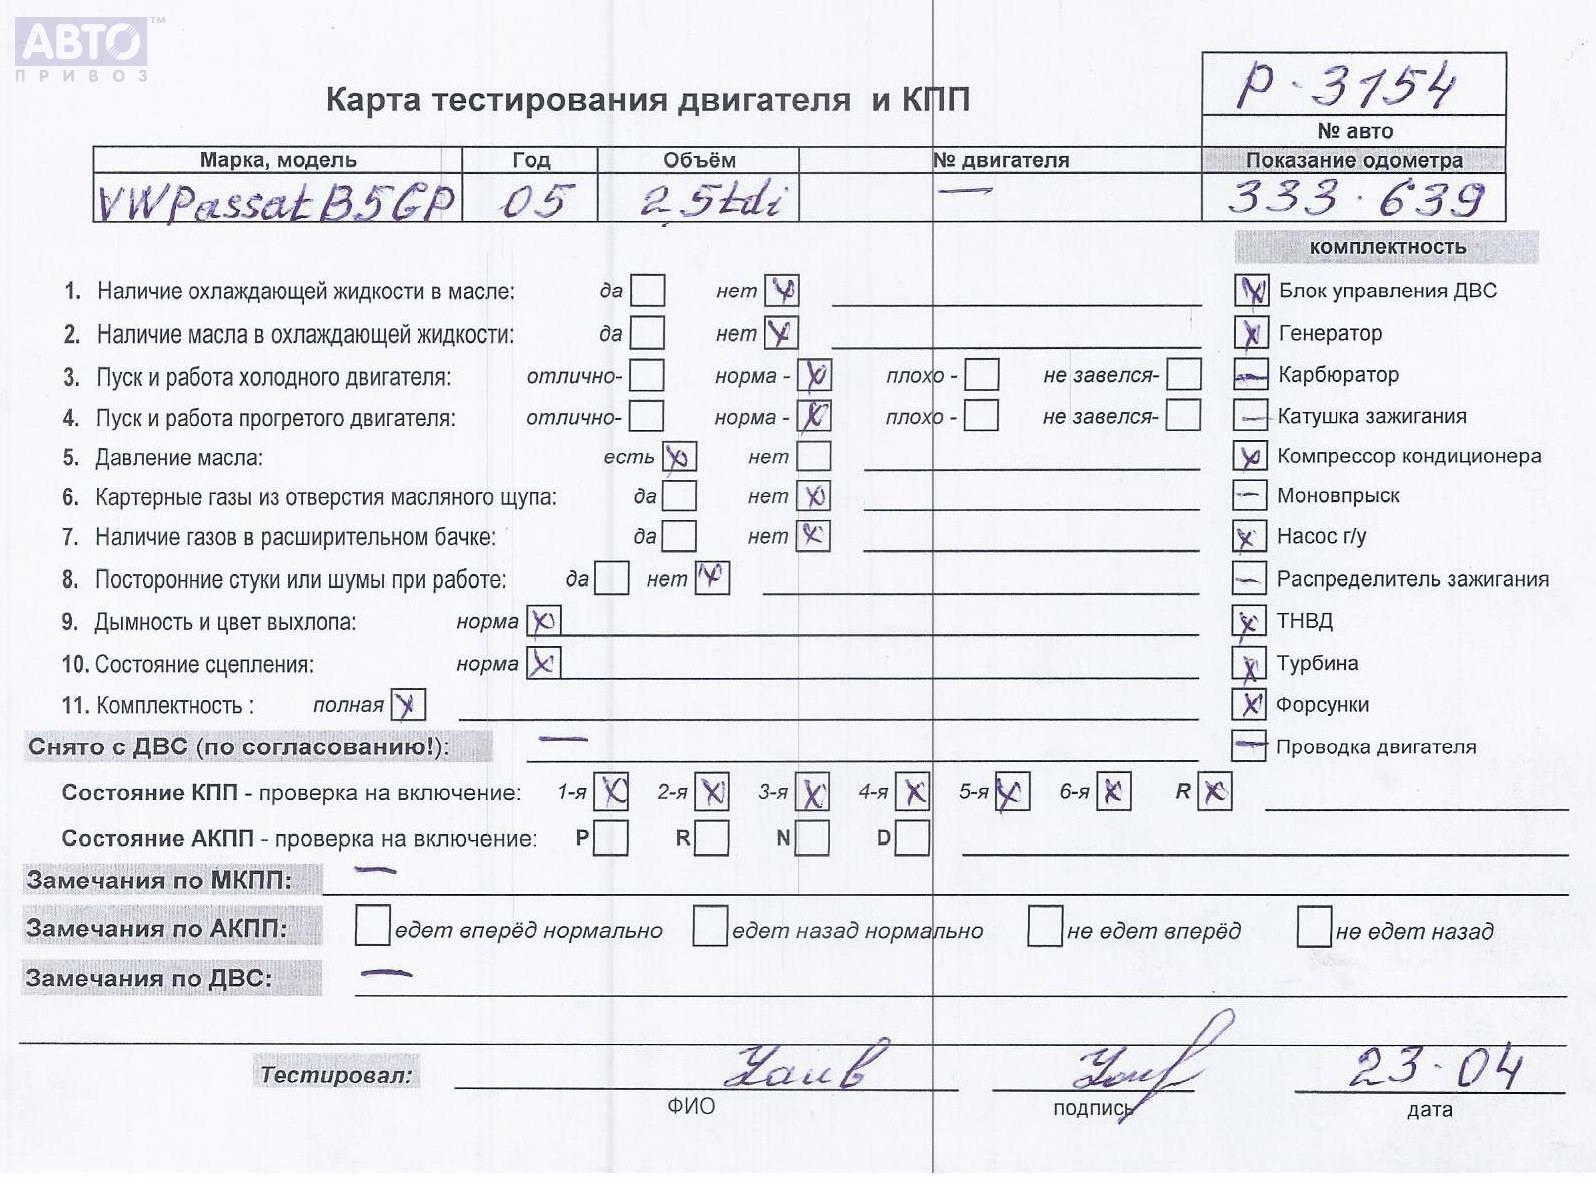 АВТО ™
ПРИВОЗ
Р-3154
Карта тестирования двигателя и КПП
№ авто
Марка, модель Год Объём № двигателя Показание одометра
VW Passat B5 GP 05 2,5tdi — 333.639
комплектность
1. Наличие охлаждающей жидкости в масле: да нет Блок управления ДВС
2. Наличие масла в охлаждающей жидкости: да нет Генератор
3. Пуск и работа холодного двигателя: отлично- норма - плохо - не завелся- Карбюратор
4. Пуск и работа прогретого двигателя: отлично- норма - плохо - не завелся- Катушка зажигания
5. Давление масла: есть нет Компрессор кондиционера
6. Картерные газы из отверстия масляного щупа: да нет Моновпрыск
7. Наличие газов в расширительном бачке: да нет Насос г/у
8. Посторонние стуки или шумы при работе: да нет Распределитель зажигания
9. Дымность и цвет выхлопа: норма ТНВД
10. Состояние сцепления: норма Турбина
11. Комплектность : полная Форсунки
Снято с ДВС (по согласованию!): — Проводка двигателя
Состояние КПП - проверка на включение: 1-я 2-я 3-я 4-я 5-я 6-я R
Состояние АКПП - проверка на включение: P R N D
Замечания по МКПП: —
Замечания по АКПП: едет вперёд нормально едет назад нормально не едет вперёд не едет назад
Замечания по ДВС: —
Тестировал: 23-04
ФИО подпись дата